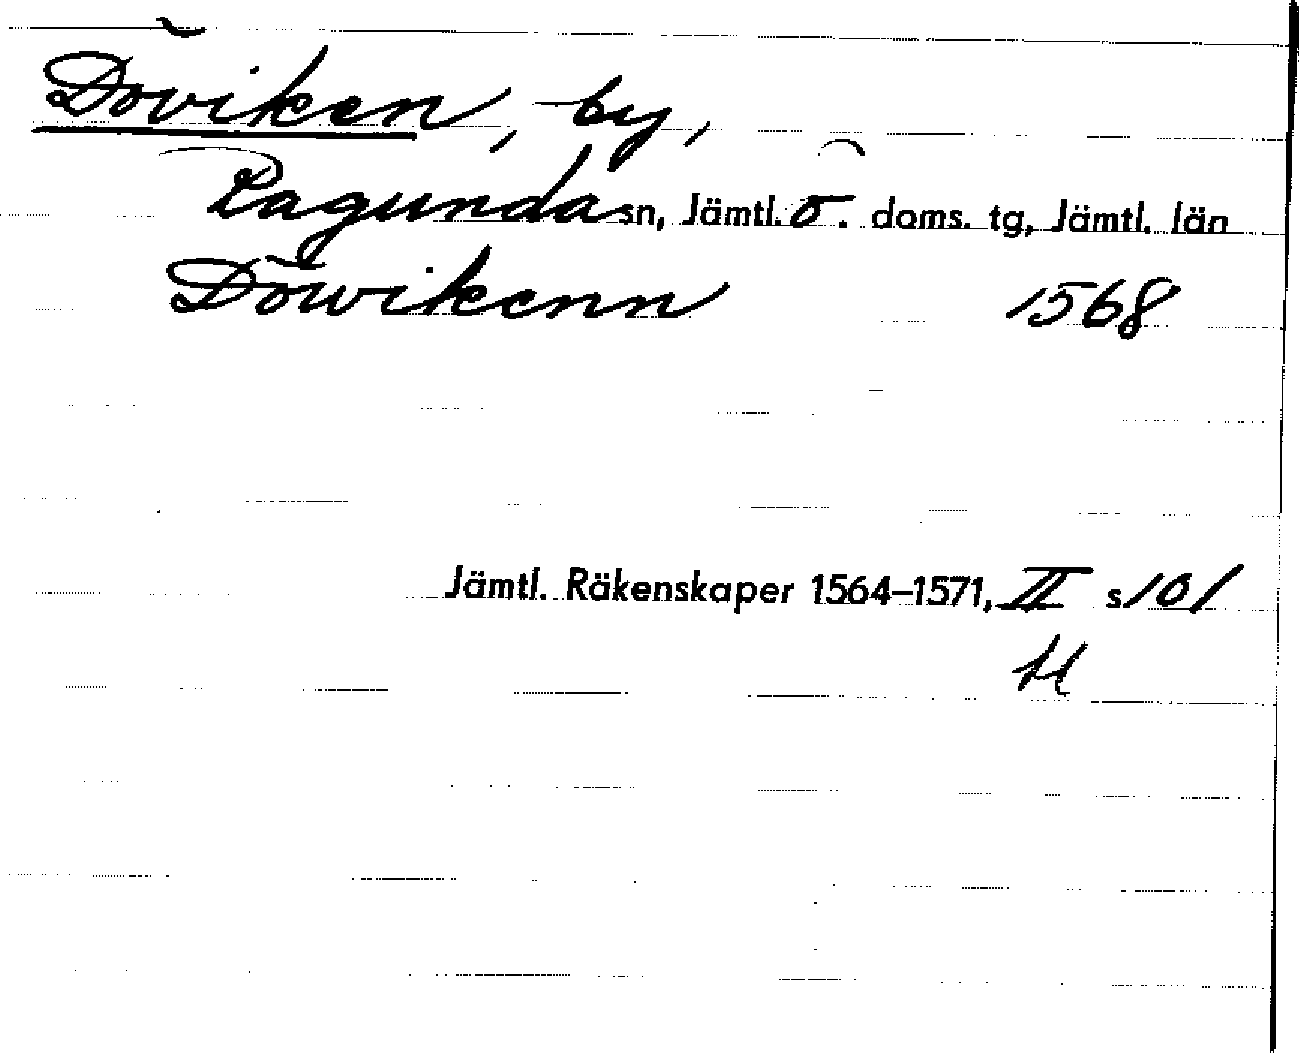 Döviken, by,
Ragunda sn, Jämtl. ö. doms. tg, Jämtl. län
Döwikenn 1568
Jämtl. Räkenskaper 1564–1571, II s 101